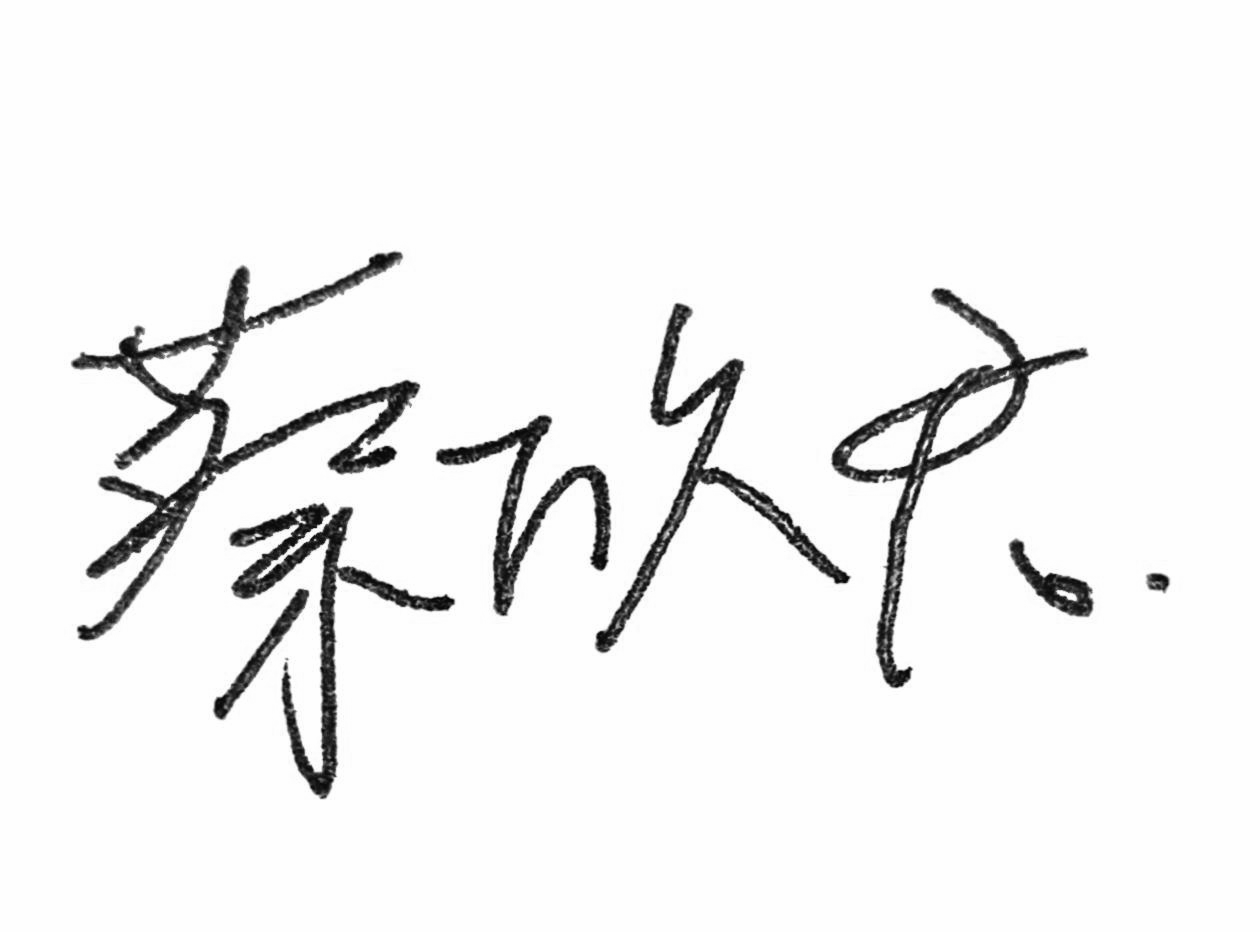 蔡欣忠